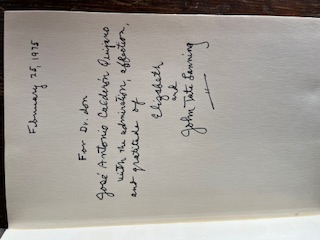 February 25, 1975
For Dr. don
José Antonio Calderón Quijano
with the admiration, affection,
and gratitude of
Elizabeth
and
John Tate Lanning